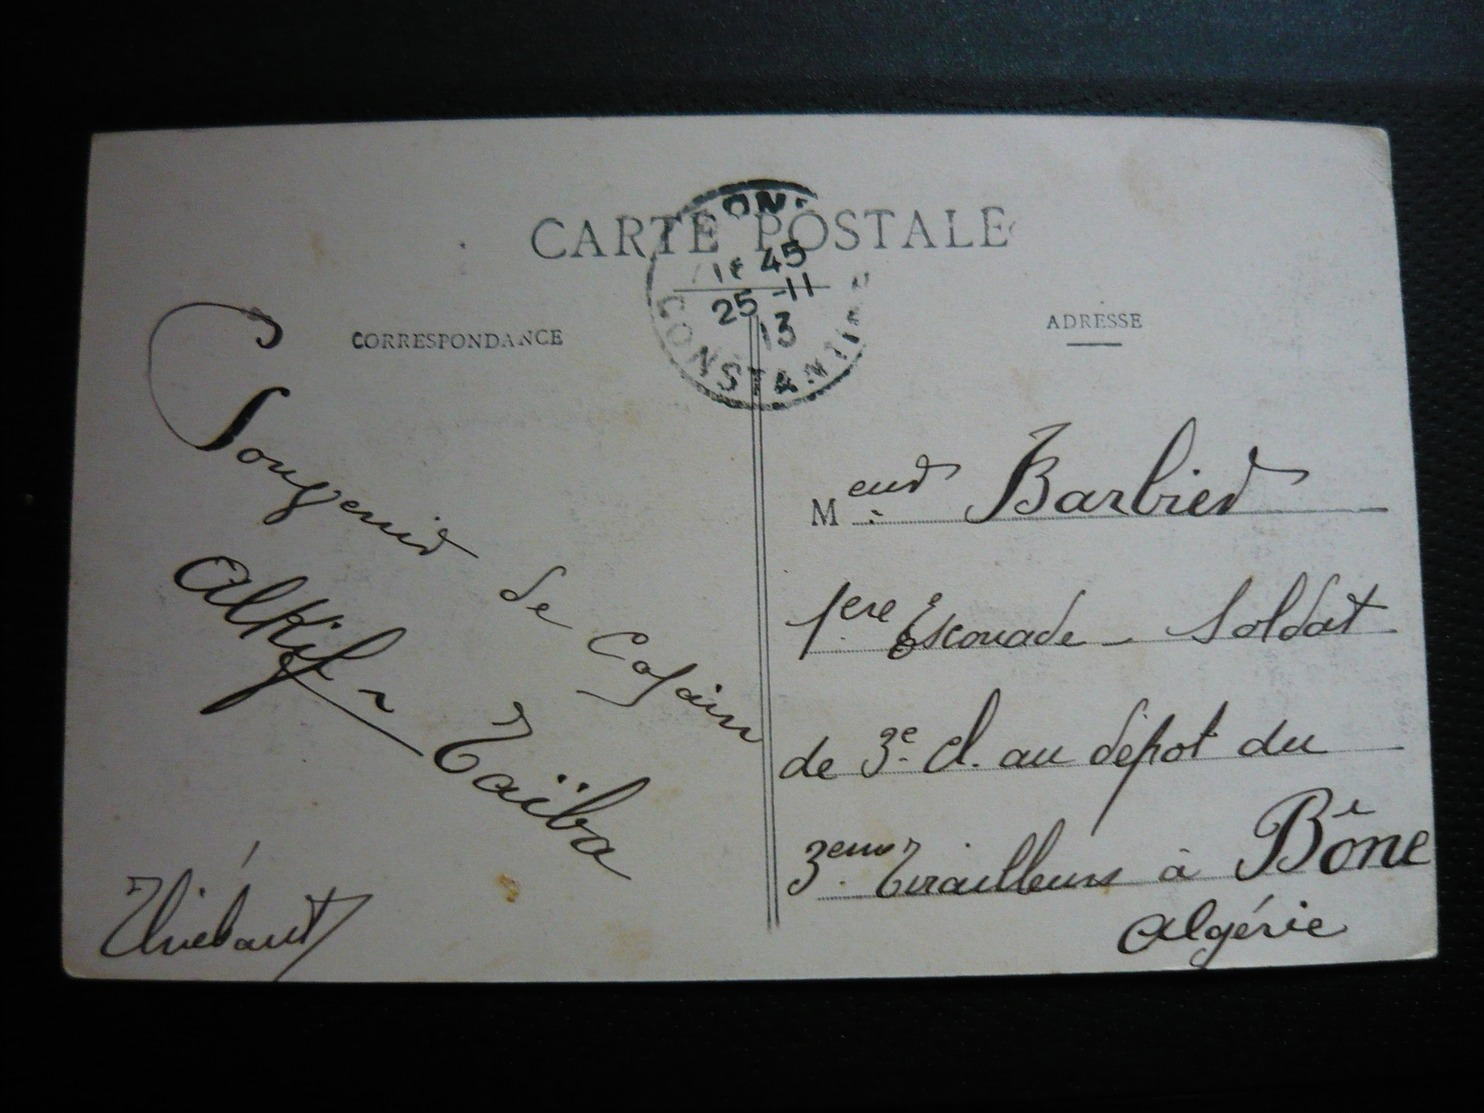 CARTE POSTALE
CORRESPONDANCE
ADRESSE
45
25 -11
13
CONSTANTINE
Souvenir de Copain
Taïba
Thiébaut
Meur Barbier
1ere Escouade - Soldat
de 3e cl. au dépot du
3eme Tirailleurs à Bône
Algérie